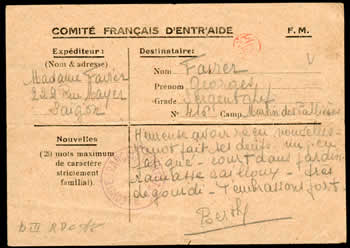 COMITÉ FRANÇAIS D'ENTR'AIDE F. M.
Expéditeur :
(Nom & adresse)
Madame
222 Rue Mayer
Saïgon
Destinataire:
Nom
Prénom Georges
Grade Sergent chef
No 416 Camp. Martin des Pallières
Nouvelles
(25 mots maximum
de caractère
strictement
familial).
Heureuse avoir reçu nouvelles
fait ses dents un peu
court dans jardin
ramasse cailloux très
dégourdi T'embrassons fort